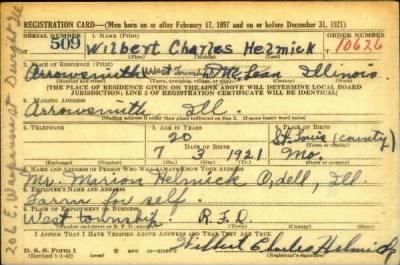 REGISTRATION CARD—(Men born on or after February 17, 1897 and on or before December 31, 1921)
SERIAL NUMBER 1. NAME (Print) ORDER NUMBER
509 Wilbert Charles Helmick 10626
(First) (Middle) (Last)
2. PLACE OF RESIDENCE (Print)
Arrowsmith West Township McLean Illinois
(THE PLACE OF RESIDENCE GIVEN ON THE LINE ABOVE WILL DETERMINE LOCAL BOARD
JURISDICTION; LINE 2 OF REGISTRATION CERTIFICATE WILL BE IDENTICAL)
3. MAILING ADDRESS
Arrowsmith Ill.
[Mailing address if other than place indicated on line 2. If same insert word same]
4. TELEPHONE 5. AGE IN YEARS 6. PLACE OF BIRTH
20 St. Louis (county)
DATE OF BIRTH
7 3 1921 Mo.
7. NAME AND ADDRESS OF PERSON WHO WILL ALWAYS KNOW YOUR ADDRESS
Mr. Marion Helmick Odell, Ill
8. EMPLOYER'S NAME AND ADDRESS
Farm for self.
9. PLACE OF EMPLOYMENT OR BUSINESS
West township R.F.D.
I AFFIRM THAT I HAVE VERIFIED ABOVE ANSWERS AND THAT THEY ARE TRUE.
D. S. S. Form 1
(Revised 1-1-42) (over)
Wilbert Charles Helmick
206 E. Dwight Ill